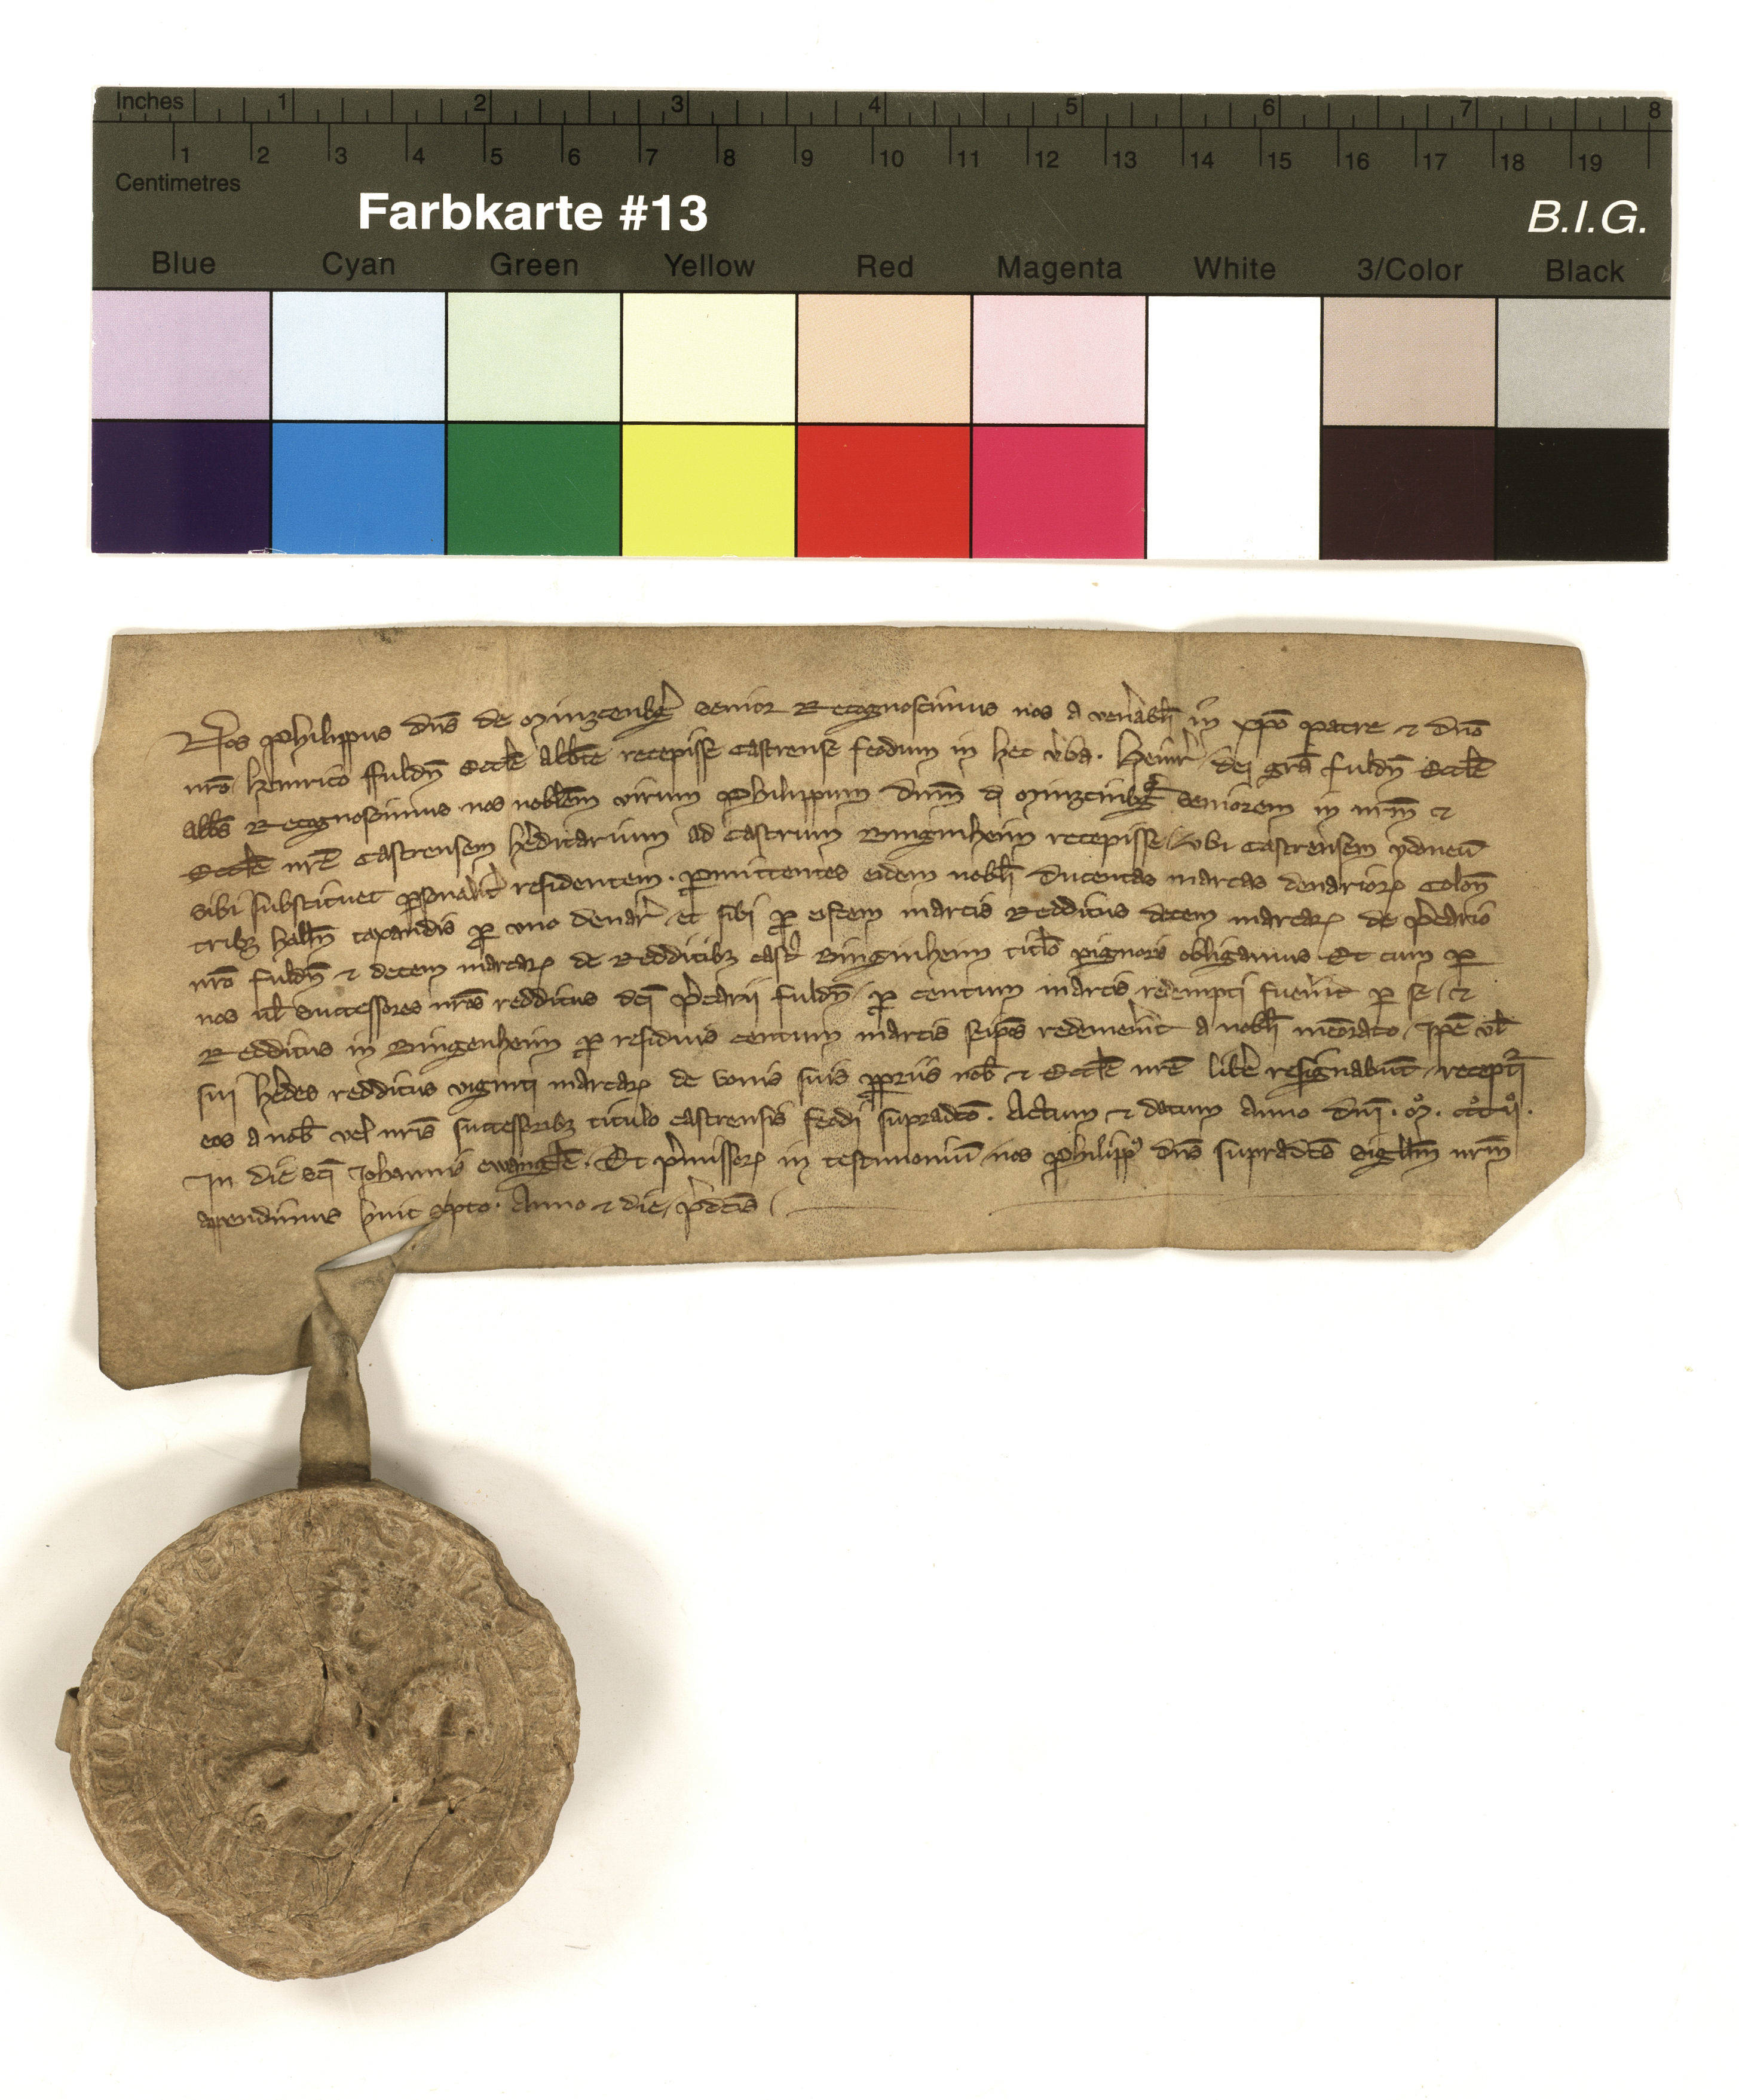 Inches 1 2 3 4 5 6 7 8
1 2 3 4 5 6 7 8 9 10 11 12 13 14 15 16 17 18 19
Centimetres
Farbkarte #13 B.I.G.
Blue Cyan Green Yellow Red Magenta White 3/Color Black
Nos Philippus dn̄s de Minzenbg̾ senior Recognoscimus nos a ven̾abil̄i in xp̄o patre ⁊ dn̄o
nr̄o Heinrico ffuldn̄ Eccl̄e Abb̄te recepisse castrense feodum in hec v̾ba. Heinr̾ dei gr̄a fuldn̄ Eccl̄e
Abb̄s Recognoscimus nos nobl̄em virum Philippum dn̄m d̾ Minzinbg̾ seniorem in nr̄m ⁊
Eccl̄e nr̄e castrensem h̾editarium ad castrum Binginheim recepisse / vbi castrensem ydoneū
sibi substituet p̲sonalit̾ residentem. p̲mittentes eidem nobl̄i ducentas marcas denarioꝝ Colon̄
tribꝫ hall̄n conputandis p̲ uno denar̾. et sibi p̲ eisdem marcis Redditus decem marcaꝝ de p̾cario
nr̄o fuldn̄ ⁊ decem marcaꝝ de Redditibꝫ cast̾ Binginheim titl̄o pignoris obligamus. Et cum p̲
nos ul̄ successores nr̄os redditus dc̄i p̾carii fuldn̄ / p̲ centum marcis redempti fuer̄int p̲ se / ⁊
Redditus in Bingenheim p̲ residuis centum marcis seip̄os redemer̄int a nobl̄i mēorato / ip̄e vl̄
sui h̾edes redditus viginti marcaꝝ de bonis suis p̲priis nob̄ ⁊ Eccl̄e nr̄e lib̾e resignabūt / recept̾i
eos a nob̄ vel nr̄is successoribꝫ titulo castrensis feodi supradc̄o. Actum ⁊ datum Anno dn̄i. M̊. CC̊C̊ii̊.
In die sc̄i Johannis ewangl̄e. Et p̾missoꝝ in testimoniū nos Philippꝰ dn̄s supradc̄s sigill̄m nr̄m
appendimus huic sc̾pto. Anno ⁊ die p̾dc̄is